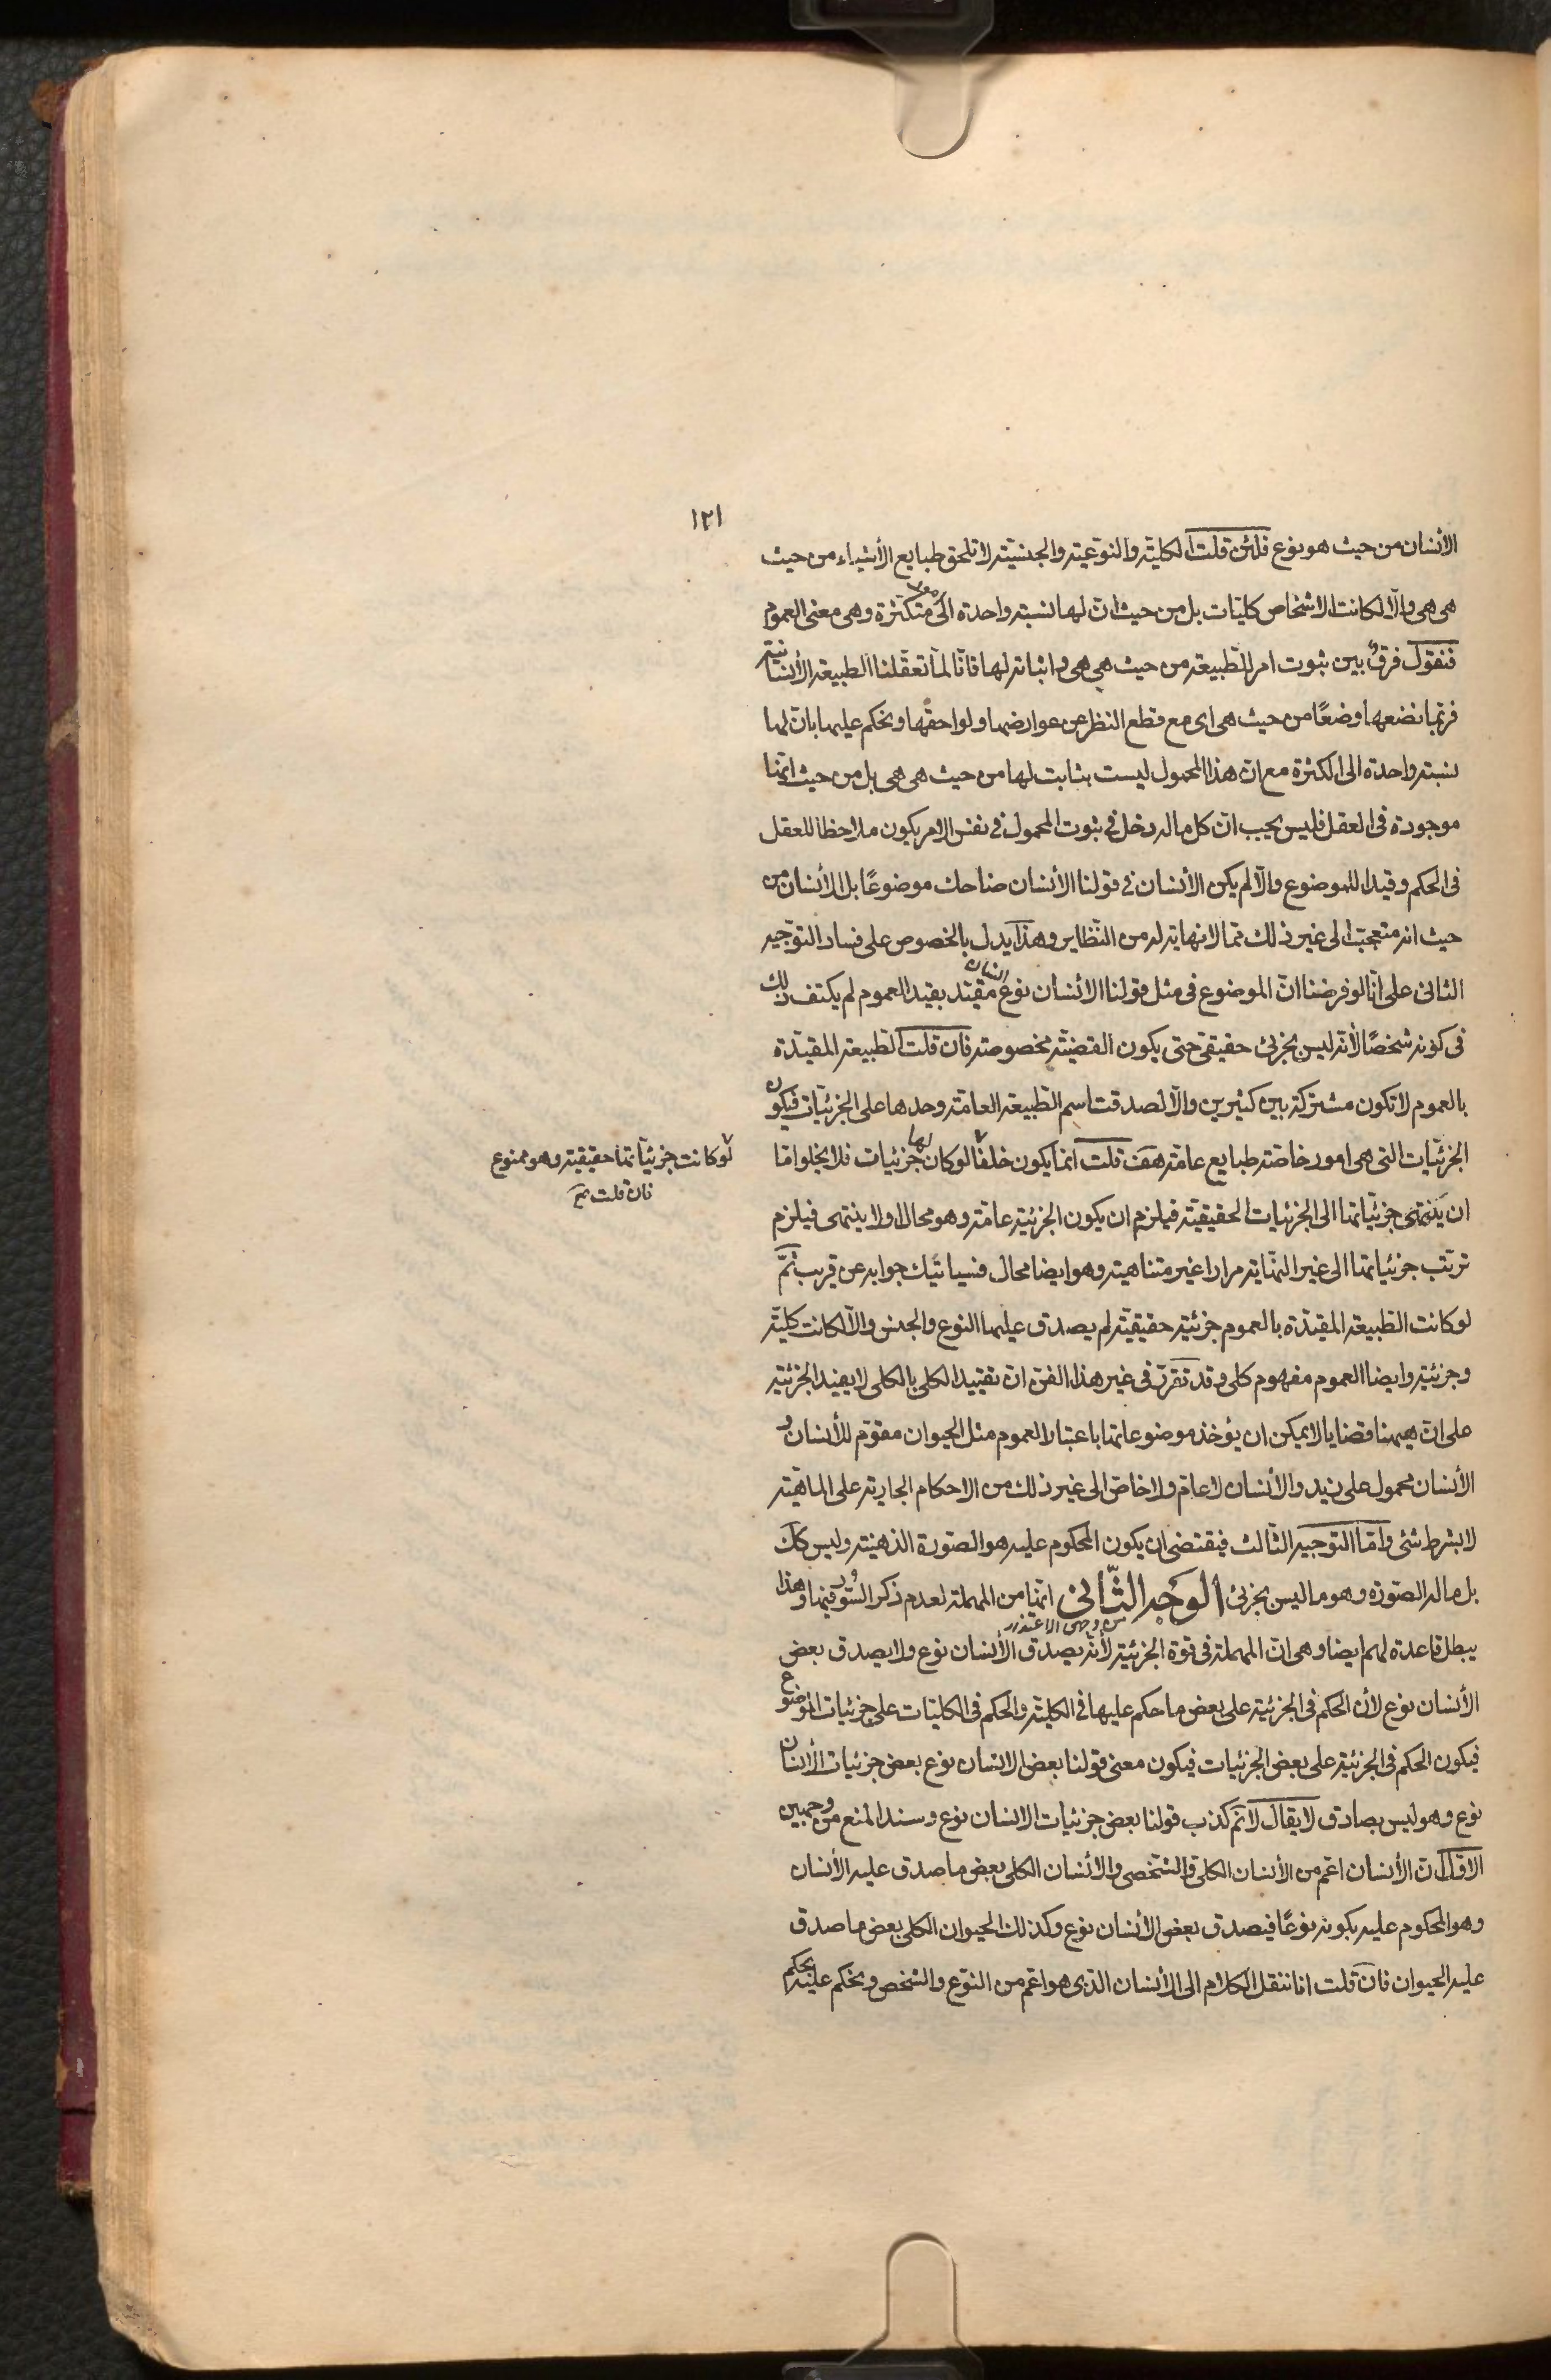 ١٢١
الأنسان من حيث هو نوع فلئن قلت الكلية والنوعية والجنسية لا تلحق طبايع الأشياء من حيث
هى هى والّا لكانت الاشخاص كليّات بل من حيث انّ لها نسبته واحدة الى متكثرة وهى معنى العموم
فنقول فرق بين ثبوت امر للطبيعة من حيث هى هى واثباته لها فانّا لمّا تعقّلنا الطبيعة الأنسانية
فربّما نضعها وضعًا من حيث هى اى مع قطع النظر عن عوارضها ولواحقها ونحكم عليها بانّ لها
نسبته واحدة الى الكثرة مع انّ هذا المحمول ليست بثابت لها من حيث هى هى بل من حيث انّها
موجودة فى العقل فليس يجب انّ كل ماله دخل فى ثبوت المحمول فى نفس الامر يكون ملاحظا للعقل
فى الحكم وقيدا للموضوع والّا لم يكن الأنسان فى قولنا الأنسان ضاحك موضوعًا بل الأنسان من
حيث انه متعجب الى غير ذلك ممّا لا نهاية له من النّظاير وهذا يدل بالخصوص على فساد التوجيه
الثانى على انّا لو فرضنا انّ الموضوع فى مثل قولنا الأنسان نوع انسان مقيّد بقيد العموم لم يكتف ذلك
فى كونه شخصًا لأنّه ليس بجزئى حقيقى حتى يكون القضيّة مخصوصة فان قلت الطبيعة المقيّدة
بالعموم لا تكون مشتركة بين كثيرين والّا لصدقت اسم الطبيعة العامّة وحدها على الجزئيّات فيكون
الجزئيّات التى هى امور خاصّة طبايع عامّة هف قلت انّما يكون خلفًا لو كان لها جزئيات فلا يخلو امّا
لو كانت جزئيّاتها حقيقية وهو ممنوع
فان قلت صح
ان ينتهى جزئيّاتها الى الجزئيات الحقيقيّة فيلزم ان يكون الجزئية عامّة وهو محال او لا ينتهى فيلزم
ترتّب جزئياتها الى غير النّهاية مرارا غير متناهية وهو ايضا محال فسيأتيك جوابه عن قريب ثمّ
لو كانت الطبيعة المقيّدة بالعموم جزئية حقيقيّة لم يصدق عليها النوع والجنس والّا لكانت كليّة
وجزئية وايضا العموم مفهوم كلى وقد تقرّر فى غير هذا الفن انّ تقييد الكلى بالكلى لا يفيد الجزئية
على انّ ههنا قضايا لا يمكن ان يؤخذ موضوعاتها باعتبار العموم مثل الحيوان مقوّم للأنسان و
الأنسان محمول على زيد والأنسان لا عام ولا خاص الى غير ذلك من الاحكام الجارية على الماهيّة
لا بشرط شئى وامّا التوجيه الثّالث فيقتضى ان يكون المحكوم عليه هو الصّورة الذهنيّة وليس كك
بل ماله الصّورة وهو ما ليس بجزئى الوجه الثّانى من وجهى الاعتذار انّها من المهملة لعدم ذكر السّور فيها وهذا
يبطل قاعدة لهم ايضا وهى انّ المهملة فى قوة الجزئية لأنّه يصدق الأنسان نوع ولا يصدق بعض
الأنسان نوع لأن الحكم فى الجزئية على بعض ما حكم عليها فى الكليّة والحكم فى الكليّات على جزئيات الموضوع
فيكون الحكم فى الجزئية على بعض الجزئيات فيكون معنى قولنا بعض الانسان نوع بعض جزئيات الأنسان
نوع وهو ليس بصادق لا يقال لا نم كذب قولنا بعض جزئيات الانسان نوع وسند المنع من وجهين
الاوّل انّ الأنسان اعم من الأنسان الكلى والشخصى والأنسان الكلى بعض ما صدق عليه الأنسان
وهو المحكوم عليه بكونه نوعًا فيصدق بعض الأنسان نوع وكذلك الحيوان الكلى بعض ما صدق
عليه الحيوان فان قلت انا ننقل الكلام الى الأنسان الذى هو اعم من النّوع والشخص ونحكم عليه بحكم